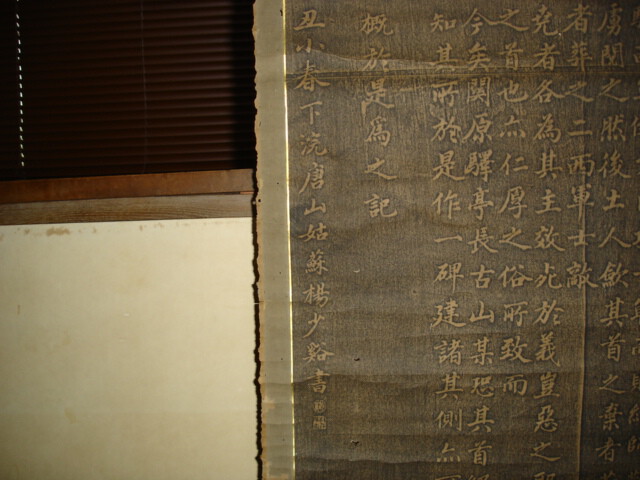 之然後土人斂其首之棄者
者葬之二西軍士敵
者各為其主效死於義豈惡之
之首也亦仁厚之俗所致而
今矣関原驛亭長古山某恐其首
知其所於是作一碑建諸其側亦
概於是為之記
丑小春下浣唐山姑蘇楊少谿書